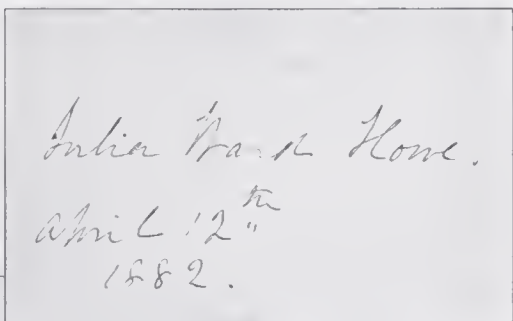 Julia Ward Howe.
April 12th
1882.